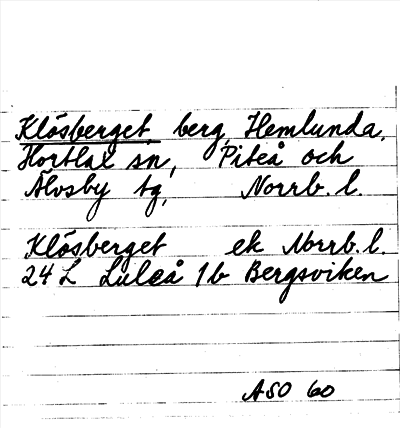 Klösberget, berg, Hemlunda,
Hortlax sn, Piteå och
Älvsby tg, Norrb. l.
Klösberget ek Norrb. l.
24 L Luleå 1b Bergsviken
ASO 60